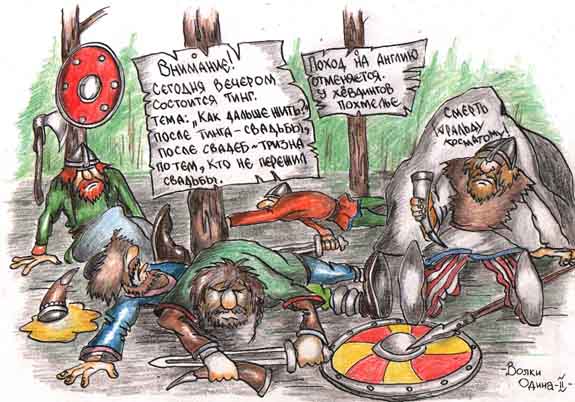 Внимание!
Сегодня вечером
состоится тинг.
Тема: „Как дальше жить?"
После тинга - свадьбы,
после свадеб - тризна
по тем, кто не пережил
свадьбы.
Поход на Англию
отменяется.
У хёвдингов
похмелье.
Смерть
Харальду
Косматому!
-Волки
Одина-II-